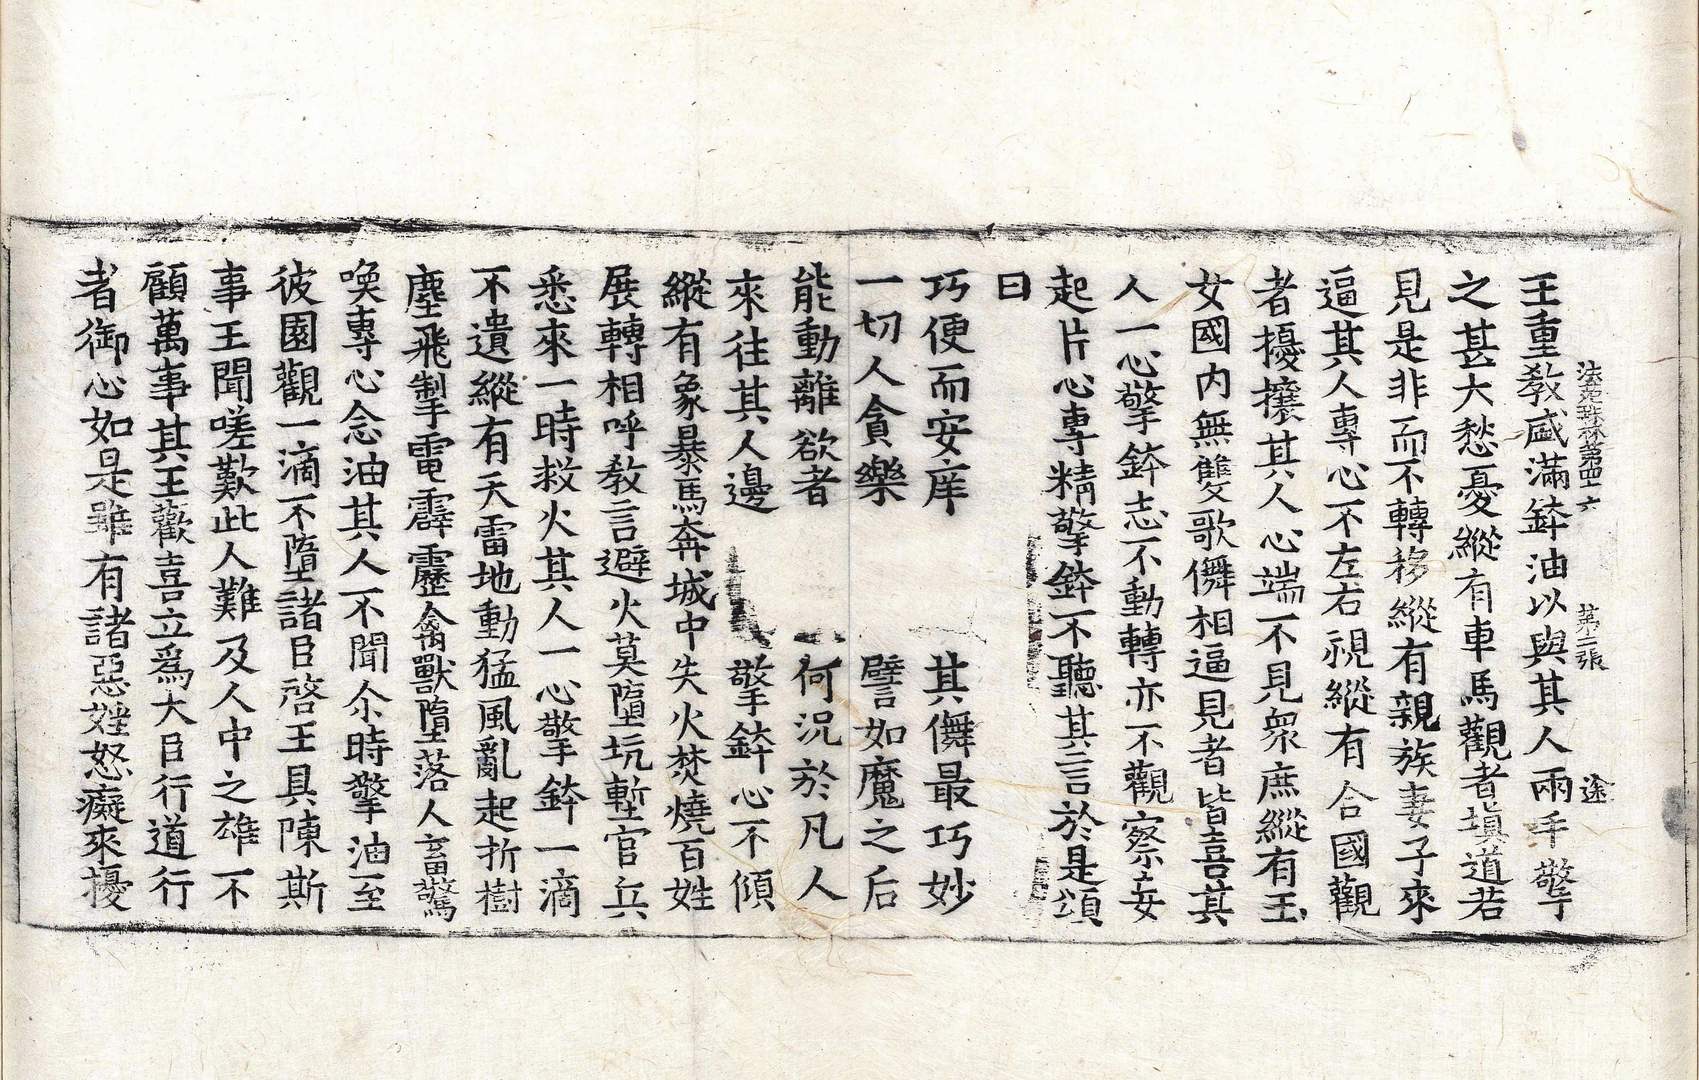 法苑珠林第四十六 第三張 途
王重敎盛滿鉢油以與其人兩手擎
之甚大愁憂縱有車馬觀者塡道若
見是非而不轉移縱有親族妻子來
逼其人專心不左右視縱有合國觀
者擾攘其人心端不見衆庶縱有玉
女國內無雙歌儛相逼見者皆喜其
人一心擎鉢志不動轉亦不觀察妄
起片心專精擎鉢不聽其言於是頌
曰
巧便而安庠 其儛最巧妙
一切人貪樂 譬如魔之后
能動離欲者 何況於凡人
來往其人邊 擎鉢心不傾
縱有象暴馬奔城中失火焚燒百姓
展轉相呼敎言避火莫墮坑塹官兵
悉來一時救火其人一心擎鉢一滴
不遺縱有天雷地動猛風亂起折樹
塵飛掣電霹靂禽獸墮落人畜驚
喚專心念油其人不聞尒時擎油至
彼園觀一滴不墮諸臣啓王具陳斯
事王聞嗟歎此人難及人中之雄不
顧萬事其王歡喜立爲大臣行道行
者御心如是雖有諸惡婬怒癡來擾